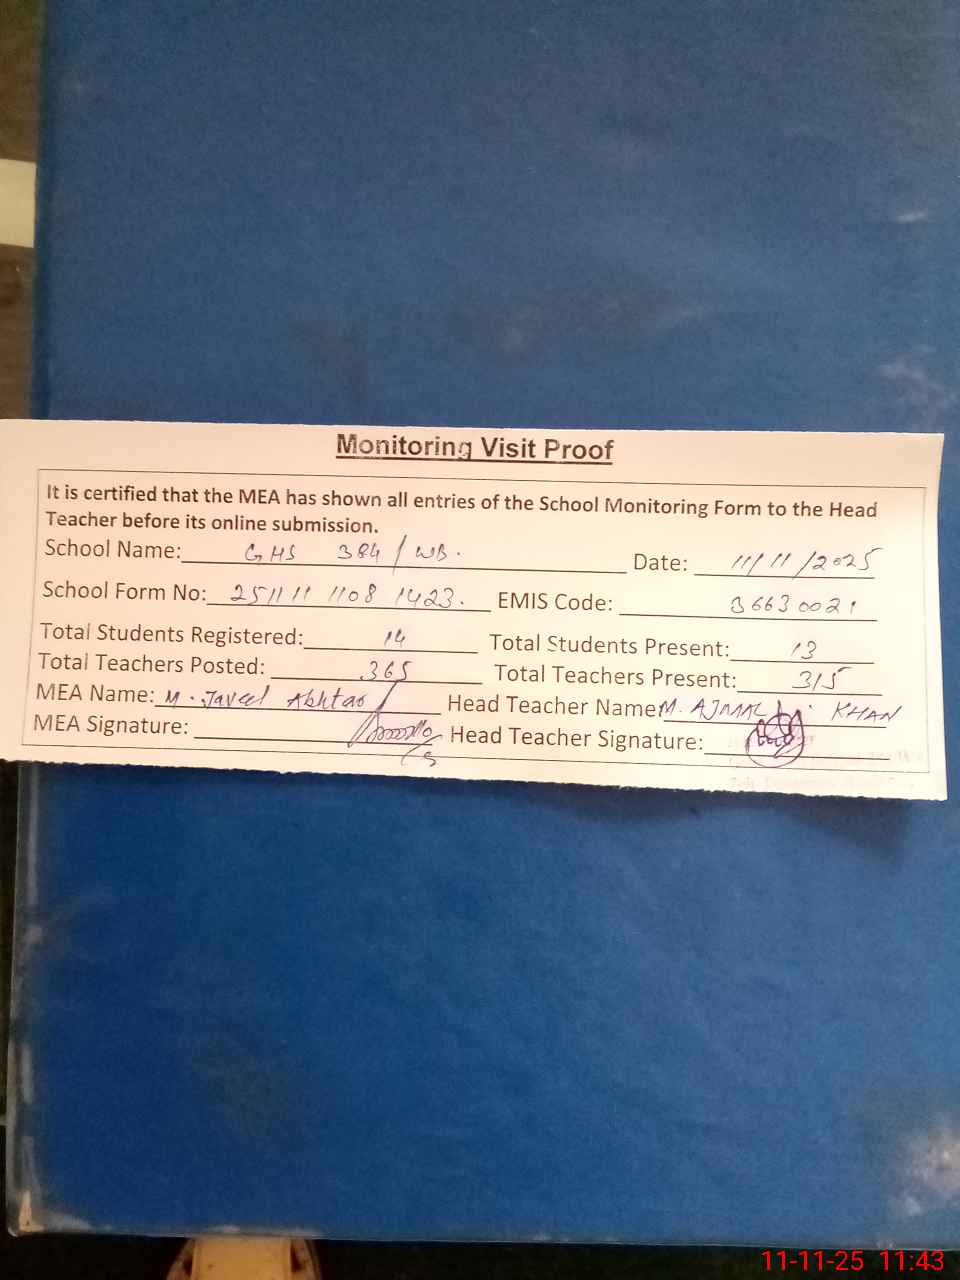 Monitoring Visit Proof
It is certified that the MEA has shown all entries of the School Monitoring Form to the Head
Teacher before its online submission.
School Name: GHS 384/WB. Date: 11/11/2025
School Form No: 251111 1108 1423. EMIS Code: 36630021
Total Students Registered: 14 Total Students Present: 13
Total Teachers Posted: 365 Total Teachers Present: 315
MEA Name: M. Javeel Akhtar Head Teacher Name: M. AJMAL KHAN
MEA Signature: Head Teacher Signature:
11-11-25 11:43